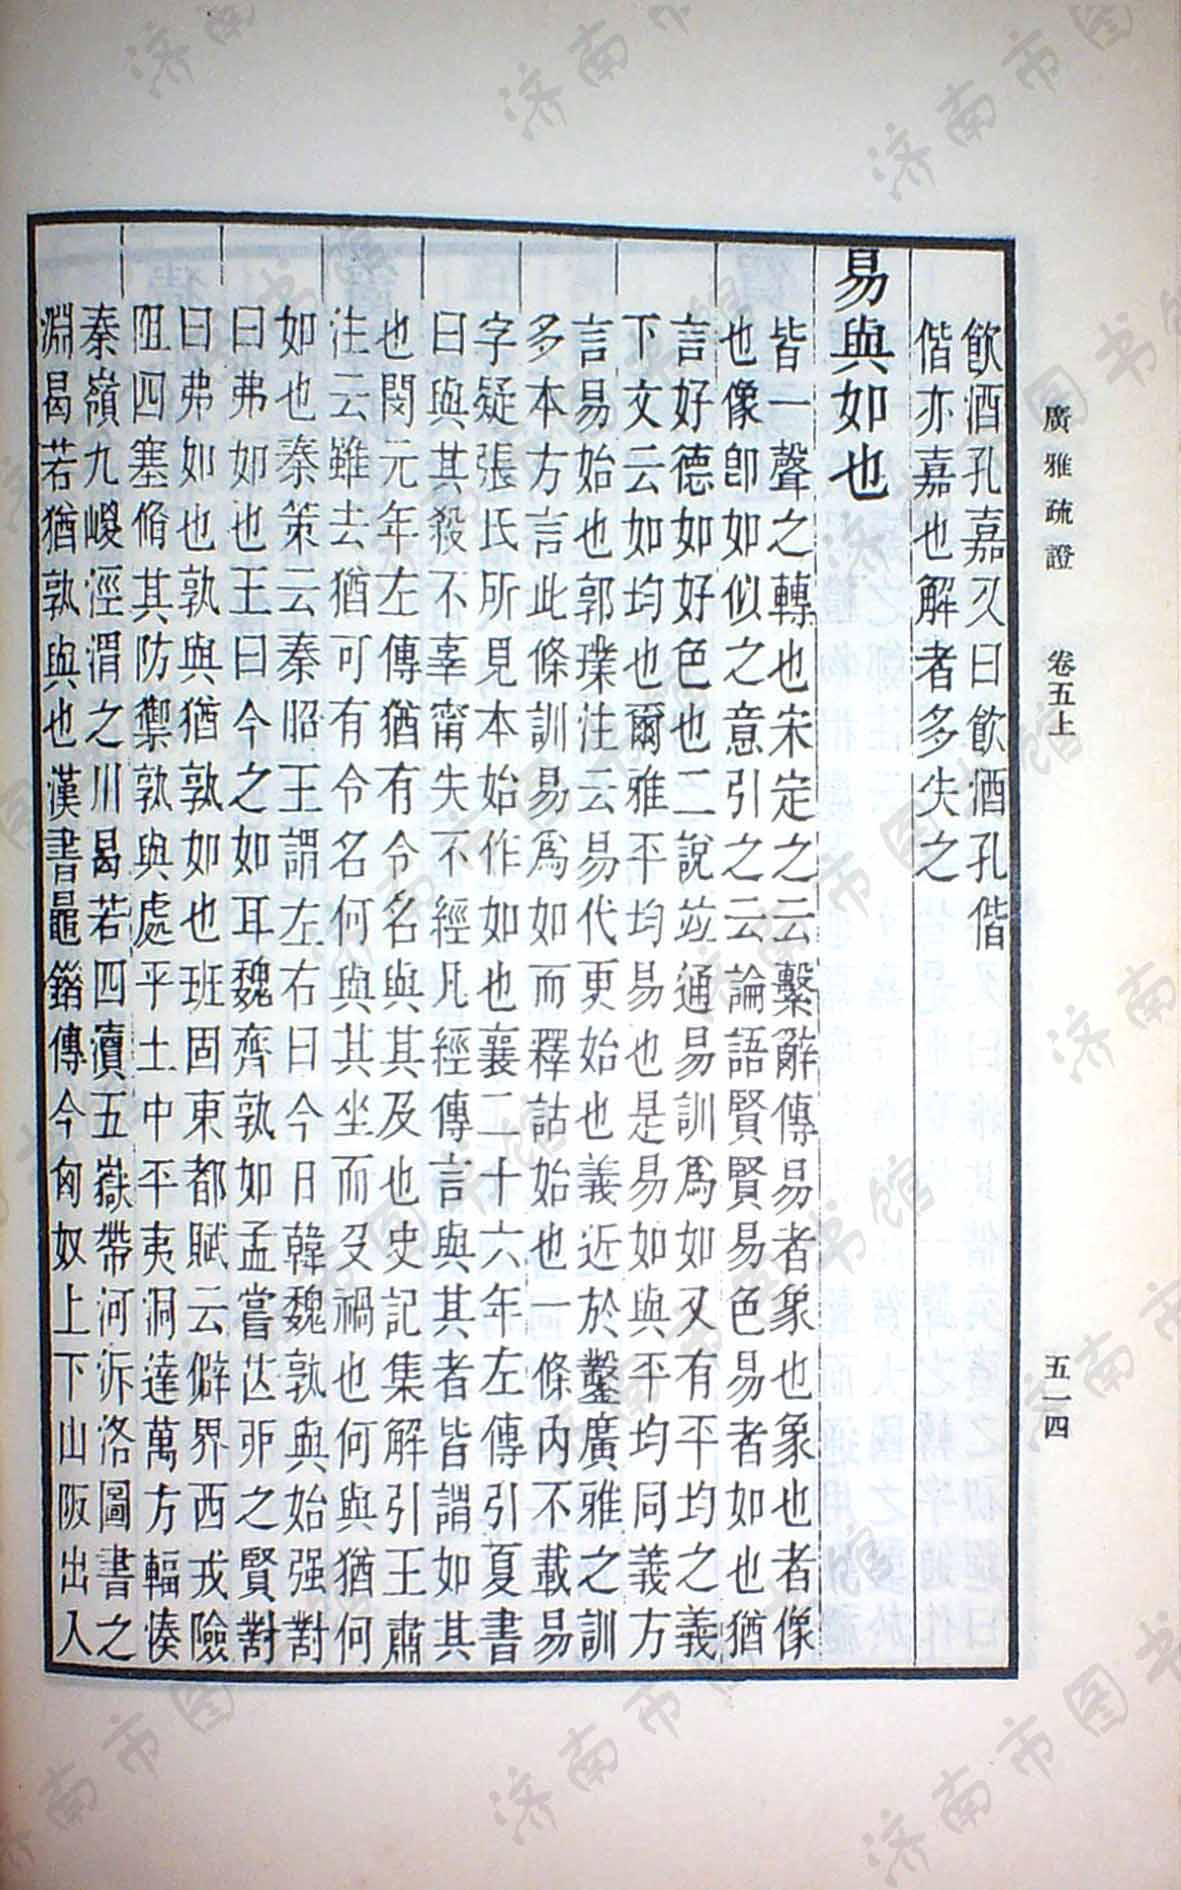 廣雅疏證　卷五上　五一四
飮酒孔嘉又曰飮酒孔偕
偕亦嘉也解者多失之
易與如也
皆一聲之轉也宋定之云繫辭傳易者象也象也者像
也像卽如似之意引之云論語賢賢易色易者如也猶
言好德如好色也二說竝通易訓爲如又有平均之義
下文云如均也爾雅平均易也是易如與平均同義方
言易始也郭璞注云易代更始也義近於鑿廣雅之訓
多本方言此條訓易爲如而釋詁始也一條內不載易
字疑張氏所見本始作如也襄二十六年左傳引夏書
曰與其殺不辜甯失不經凡經傳言與其者皆謂如其
也閔元年左傳猶有令名與其及也史記集解引王肅
注云雖去猶可有令名何與其坐而及禍也何與猶何
如也秦策云秦昭王謂左右曰今日韓魏孰與始强對
曰弗如也王曰今之如耳魏齊孰如孟嘗芒卯之賢對
曰弗如也孰與猶孰如也班固東都賦云僻界西戎險
阻四塞脩其防禦孰與處乎土中平夷洞達萬方輻湊
秦嶺九嵕涇渭之川曷若四瀆五嶽帶河泝洛圖書之
淵曷若猶孰與也漢書鼂錯傳今匈奴上下山阪出入
济南市图书馆